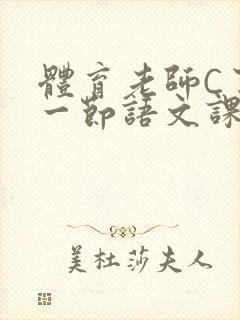 體育老師C
一節語文課
美杜莎夫人